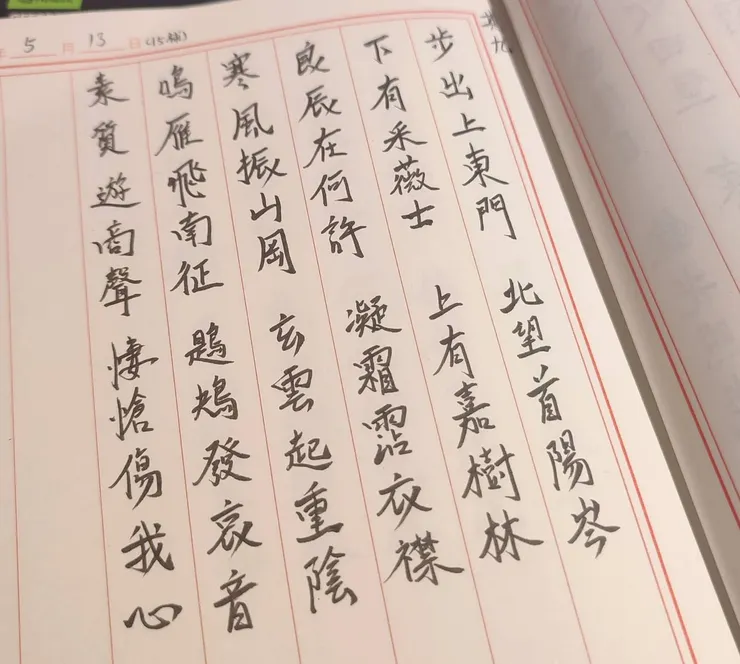 其九
步出上東門 北望首陽岑
下有采薇士 上有嘉樹林
良辰在何許 凝霜霑衣襟
寒風振山岡 玄雲起重陰
鳴雁飛南征 鶗鴂發哀音
素質遊商聲 悽愴傷我心
年 5 月 13 日